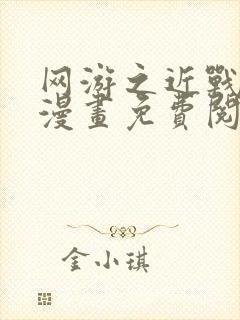 网游之近戰
漫畫免費閱
金小琪